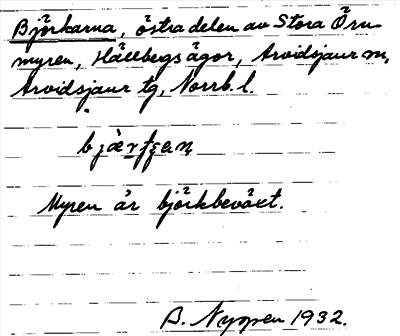 Björkarna, östra delen av Stora Örn-
myren, Hällbergs ägor, Arvidsjaur sn,
Arvidsjaur tg, Norrb. l.
Myren är björkbeväxt.
B. Nygren 1932.